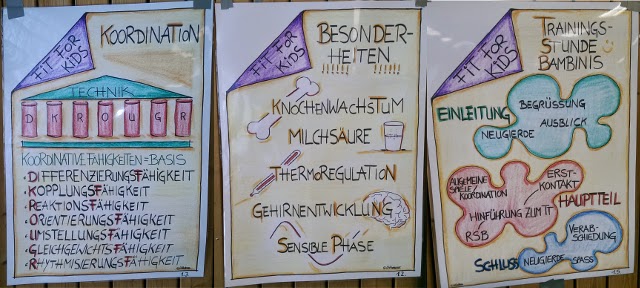 FIT FOR
KIDS
KOORDINATION
TECHNIK
D K R O U G R
KOORDINATIVE FÄHIGKEITEN = BASIS
• DIFFERENZIERUNGSFÄHIGKEIT
• KOPPLUNGSFÄHIGKEIT
• REAKTIONSFÄHIGKEIT
• ORIENTIERUNGSFÄHIGKEIT
• UMSTELLUNGSFÄHIGKEIT
• GLEICHGEWICHTSFÄHIGKEIT
• RHYTHMISIERUNGSFÄHIGKEIT
FIT FOR
KIDS
BESONDER-
HEITEN
!!!!! !!!!!
KNOCHENWACHSTUM
MILCHSÄURE
THERMOREGULATION
GEHIRNENTWICKLUNG
SENSIBLE PHASE
FIT FOR
KIDS
TRAININGS-
STUNDE
BAMBINIS
EINLEITUNG
BEGRÜSSUNG
AUSBLICK
NEUGIERDE
ALLGEMEINE
SPIELE/
KOORDINATION
ERST-
KONTAKT
HAUPTTEIL
HINFÜHRUNG ZUM TT
RSB
VERAB-
SCHIEDUNG
SCHLUSS
NEUGIERDE
SPASS